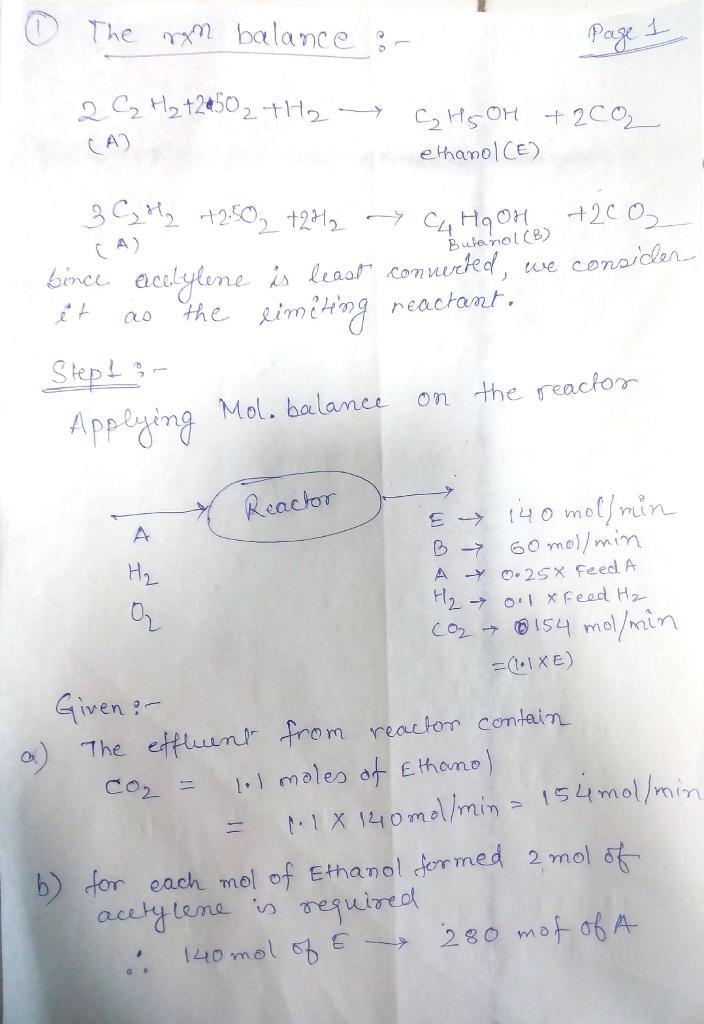 ① The rxn balance :-
Page 1
2 C₂H₂ + 2.5O₂ + H₂ → C₂H₅OH + 2CO₂
(A) ethanol (E)
3 C₂H₂ + 2.5O₂ + 2H₂ → C₄H₉OH + 2CO₂
(A) Butanol (B)
Since acetylene is least converted, we consider
it as the limiting reactant.
Step 1 :-
Applying Mol. balance on the reactor
Reactor
A
H₂
O₂
E → 140 mol/min
B → 60 mol/min
A → 0.25 x Feed A
H₂ → 0.1 x Feed H₂
CO₂ → 154 mol/min
= (1.1 x E)
Given :-
a) The effluent from reactor contain
CO₂ = 1.1 moles of Ethanol
= 1.1 x 140 mol/min = 154 mol/min
b) for each mol of Ethanol formed 2 mol of
acetylene is required
∴ 140 mol of E → 280 mol of A